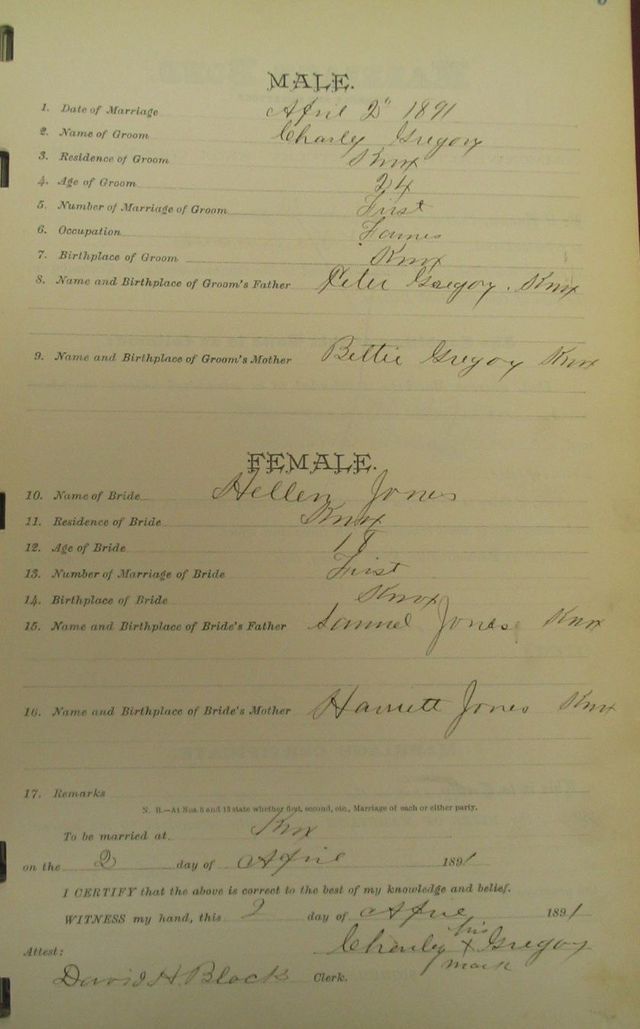 MALE.
1. Date of Marriage April 2" 1891
2. Name of Groom Charley Gregory
3. Residence of Groom Knox
4. Age of Groom 24
5. Number of Marriage of Groom First
6. Occupation Farmer
7. Birthplace of Groom Knox
8. Name and Birthplace of Groom's Father Peter Gregory. Knox
9. Name and Birthplace of Groom's Mother Bettie Gregory Knox
FEMALE.
10. Name of Bride Hellen Jones
11. Residence of Bride Knox
12. Age of Bride 18
13. Number of Marriage of Bride First
14. Birthplace of Bride Knox
15. Name and Birthplace of Bride's Father Samuel Jones Knox
16. Name and Birthplace of Bride's Mother Harriett Jones Knox
17. Remarks
N. B.—At Nos. 5 and 13 state whether first, second, etc., Marriage of each or either party.
To be married at Knox
on the 2 day of April 1891
I CERTIFY that the above is correct to the best of my knowledge and belief.
WITNESS my hand, this 2 day of April 1891
his
Attest: Charley x Gregory
mark
David H Black Clerk.